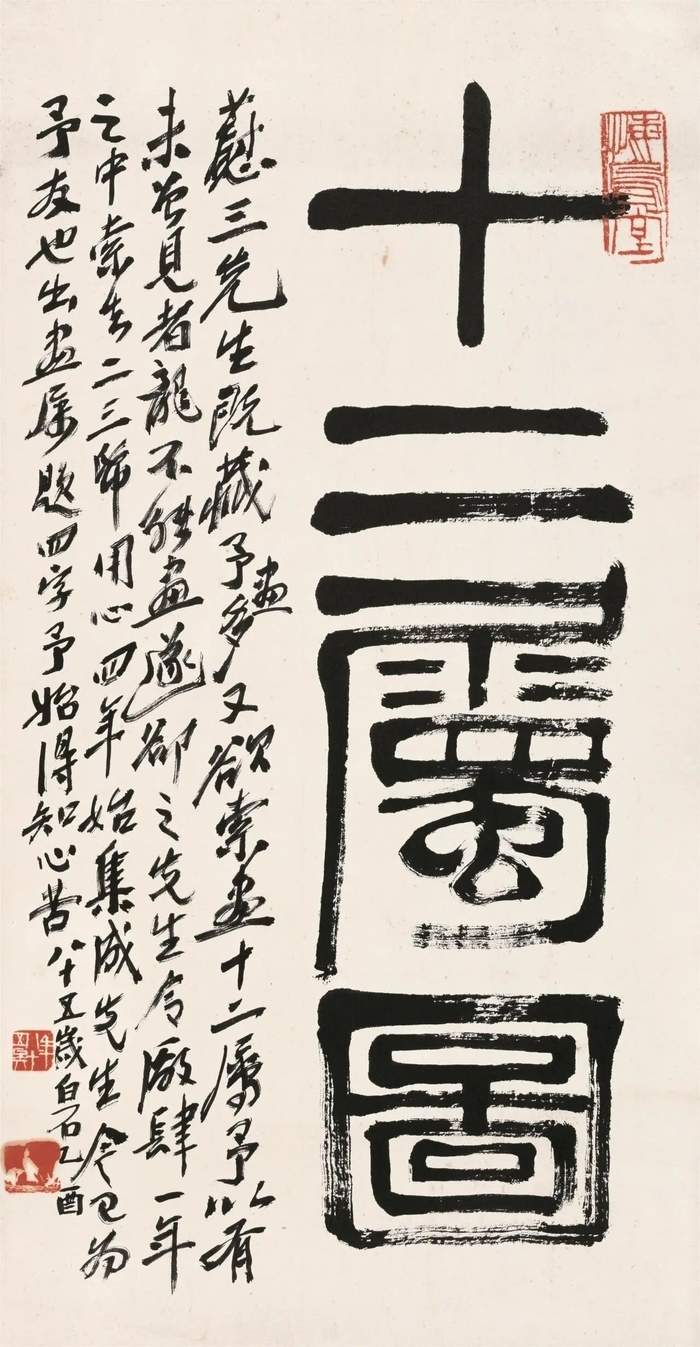 悔烏堂
十二屬圖
藯三先生既藏予畫多又欲索畫十二屬予以有
未曾見者龍不能畫遂卻之先生令廠肆一年
之中索去二三用心四年始集成先生今已為
予友也出畫屬題四字予始得知心苦八十五歲白石乙酉